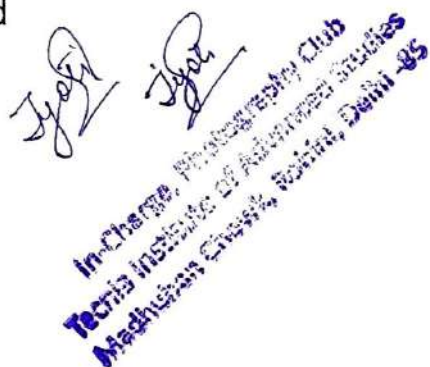 d
Jyoti Jyoti
In-Charge, Photography Club
Tecnia Institute of Advanced Studies
Madhuban Chowk, Rohini, Delhi -85